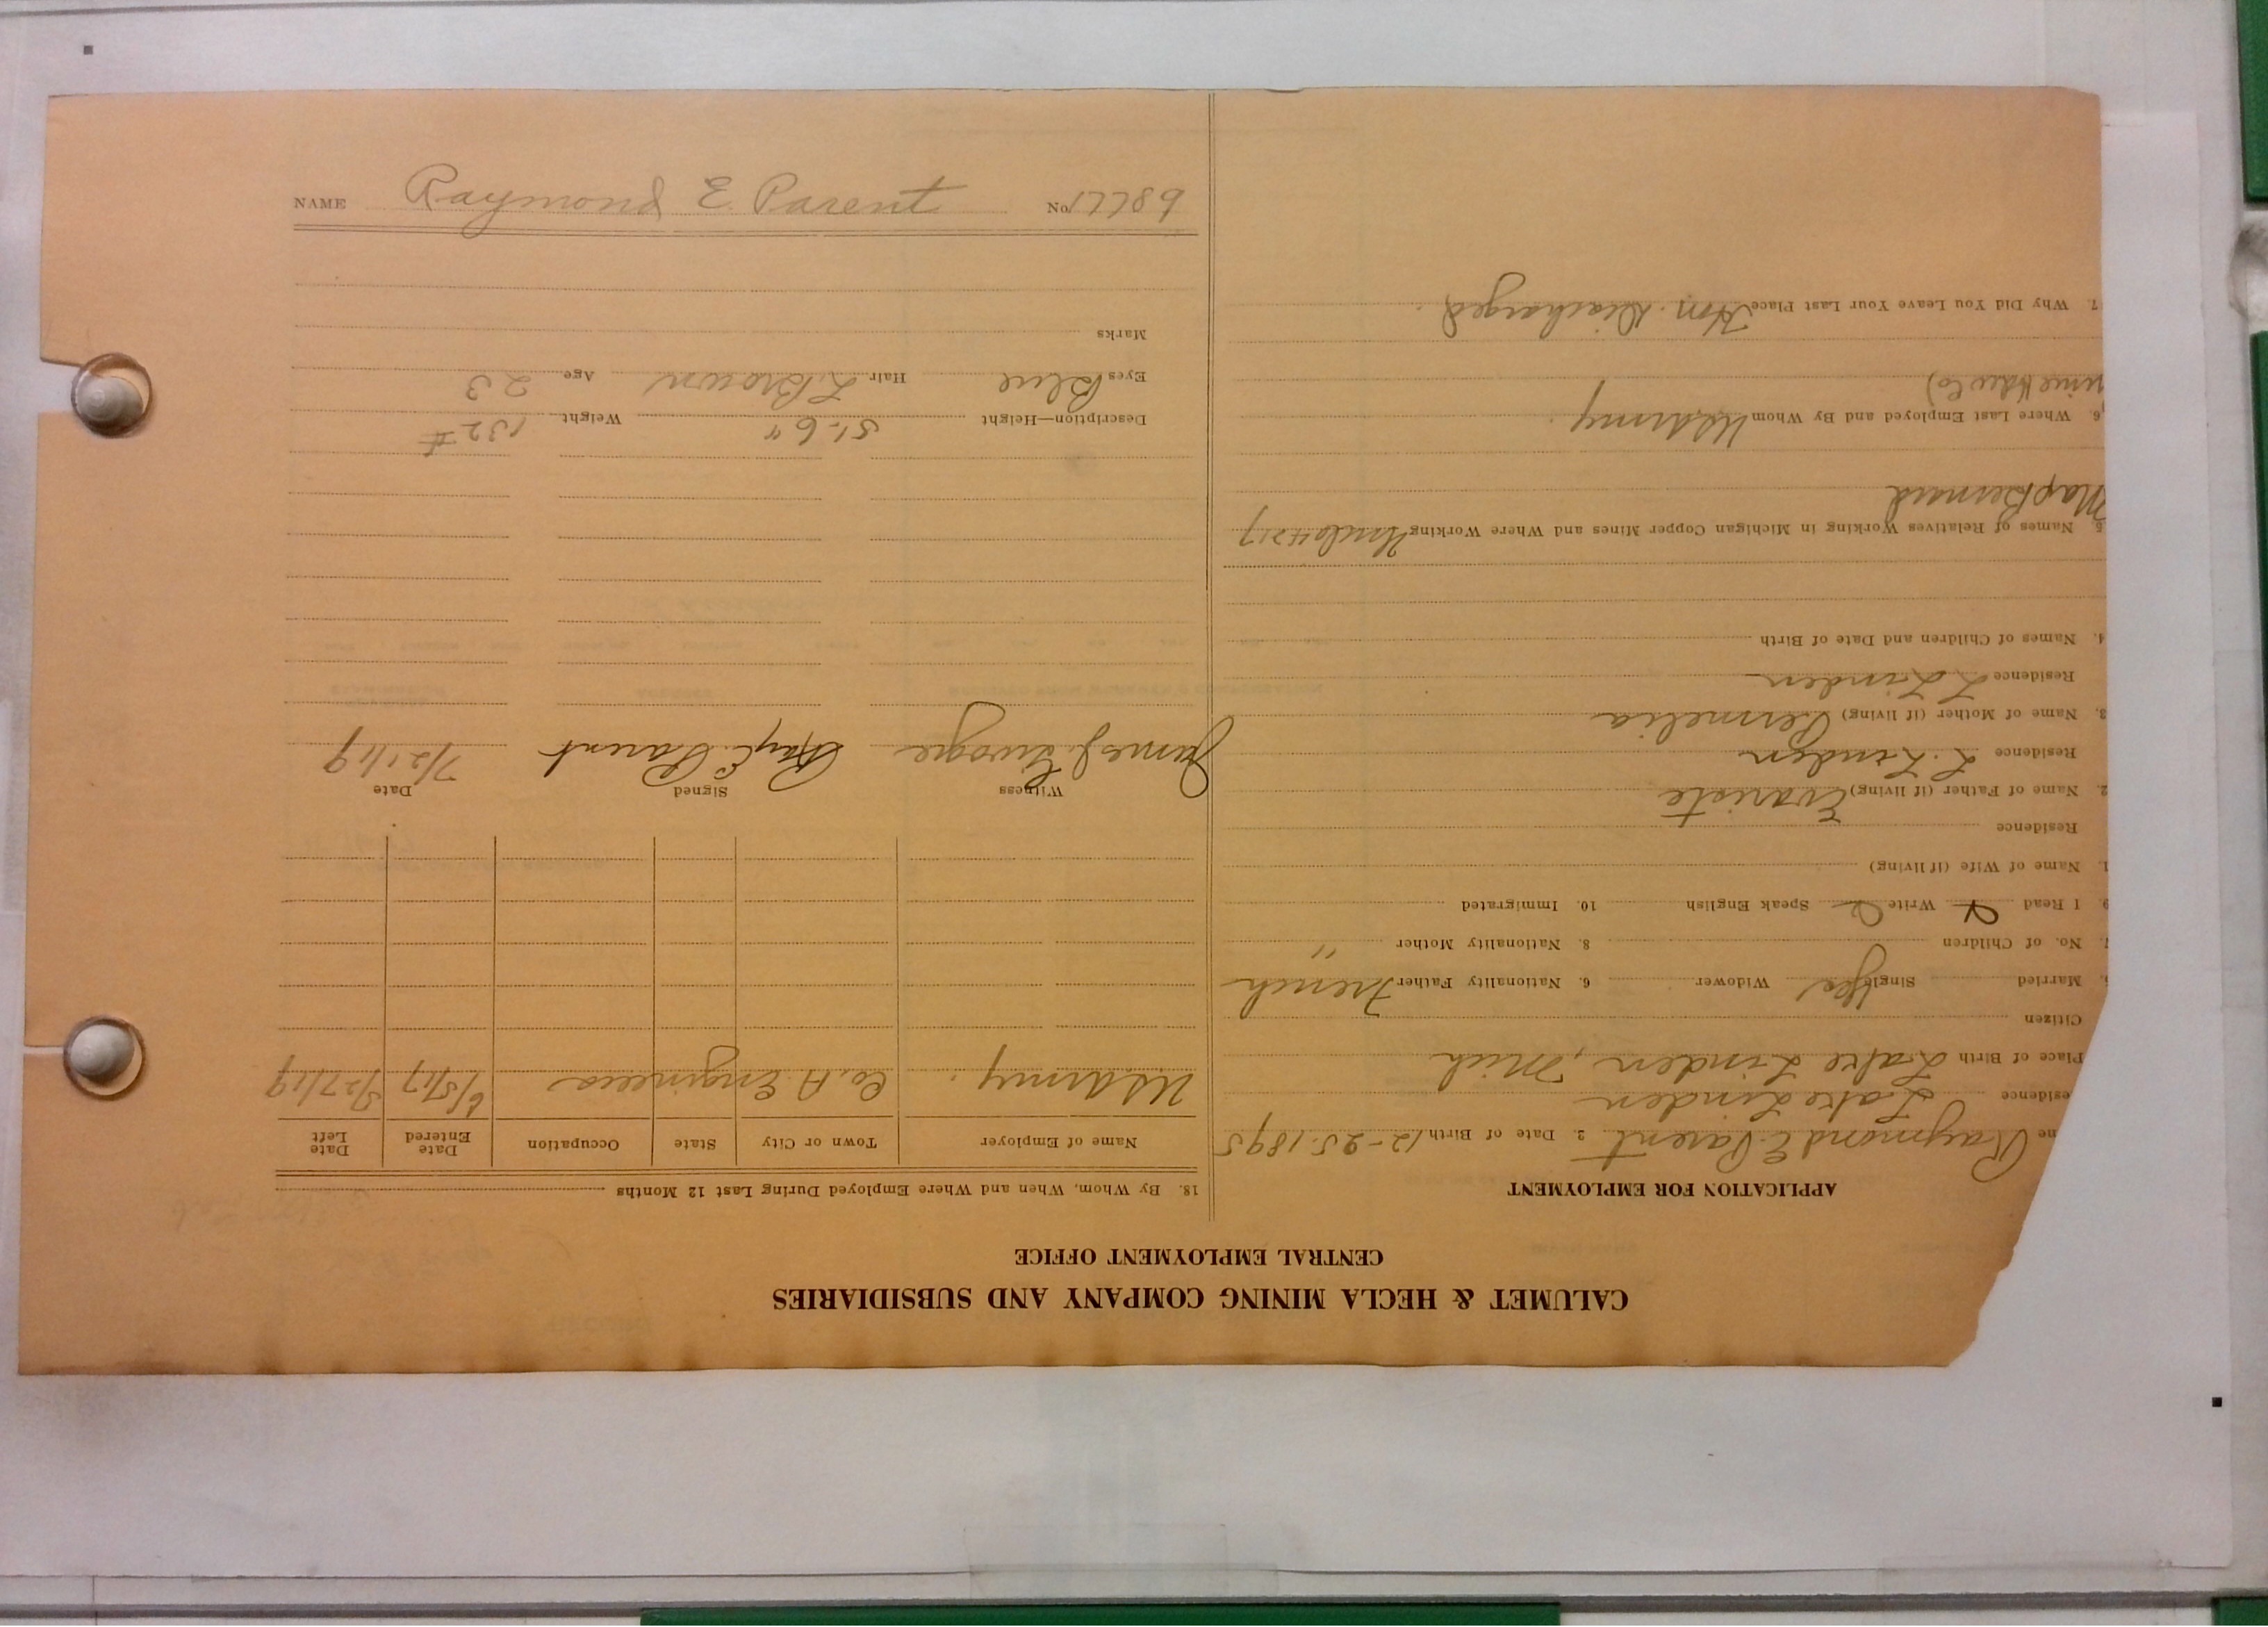 CALUMET & HECLA MINING COMPANY AND SUBSIDIARIES
CENTRAL EMPLOYMENT OFFICE
APPLICATION FOR EMPLOYMENT
me Raymond E. Parent 3. Date of Birth 12-25-1895
esidence Lake Linden
Place of Birth Lake Linden, Mich
Citizen
Married Single Yes Widower 6. Nationality Father French
7. No. of Children 8. Nationality Mother "
9. I Read Write Speak English 10. Immigrated
1. Name of Wife (if living)
Residence
2. Name of Father (if living) Evariste
Residence L. Linden
3. Name of Mother (if living) Permelia
Residence L Linden
4. Names of Children and Date of Birth
5. Names of Relatives Working in Michigan Copper Mines and Where Working
6. Where Last Employed and By Whom U.S. Army
7. Why Did You Leave Your Last Place Hon. Discharged.
18. By Whom, When and Where Employed During Last 12 Months
Name of Employer Town or City State Occupation Date Entered Date Left
U.S. Army. Co. A. Engineers 6/5/17 5/27/19
Witness Signed Date
James J. Ray E. Parent 7/21/19
Description—Height 5'-6" Weight 132 #
Eyes Blue Hair L. Brown Age 23
Marks
NAME Raymond E. Parent No. 17789